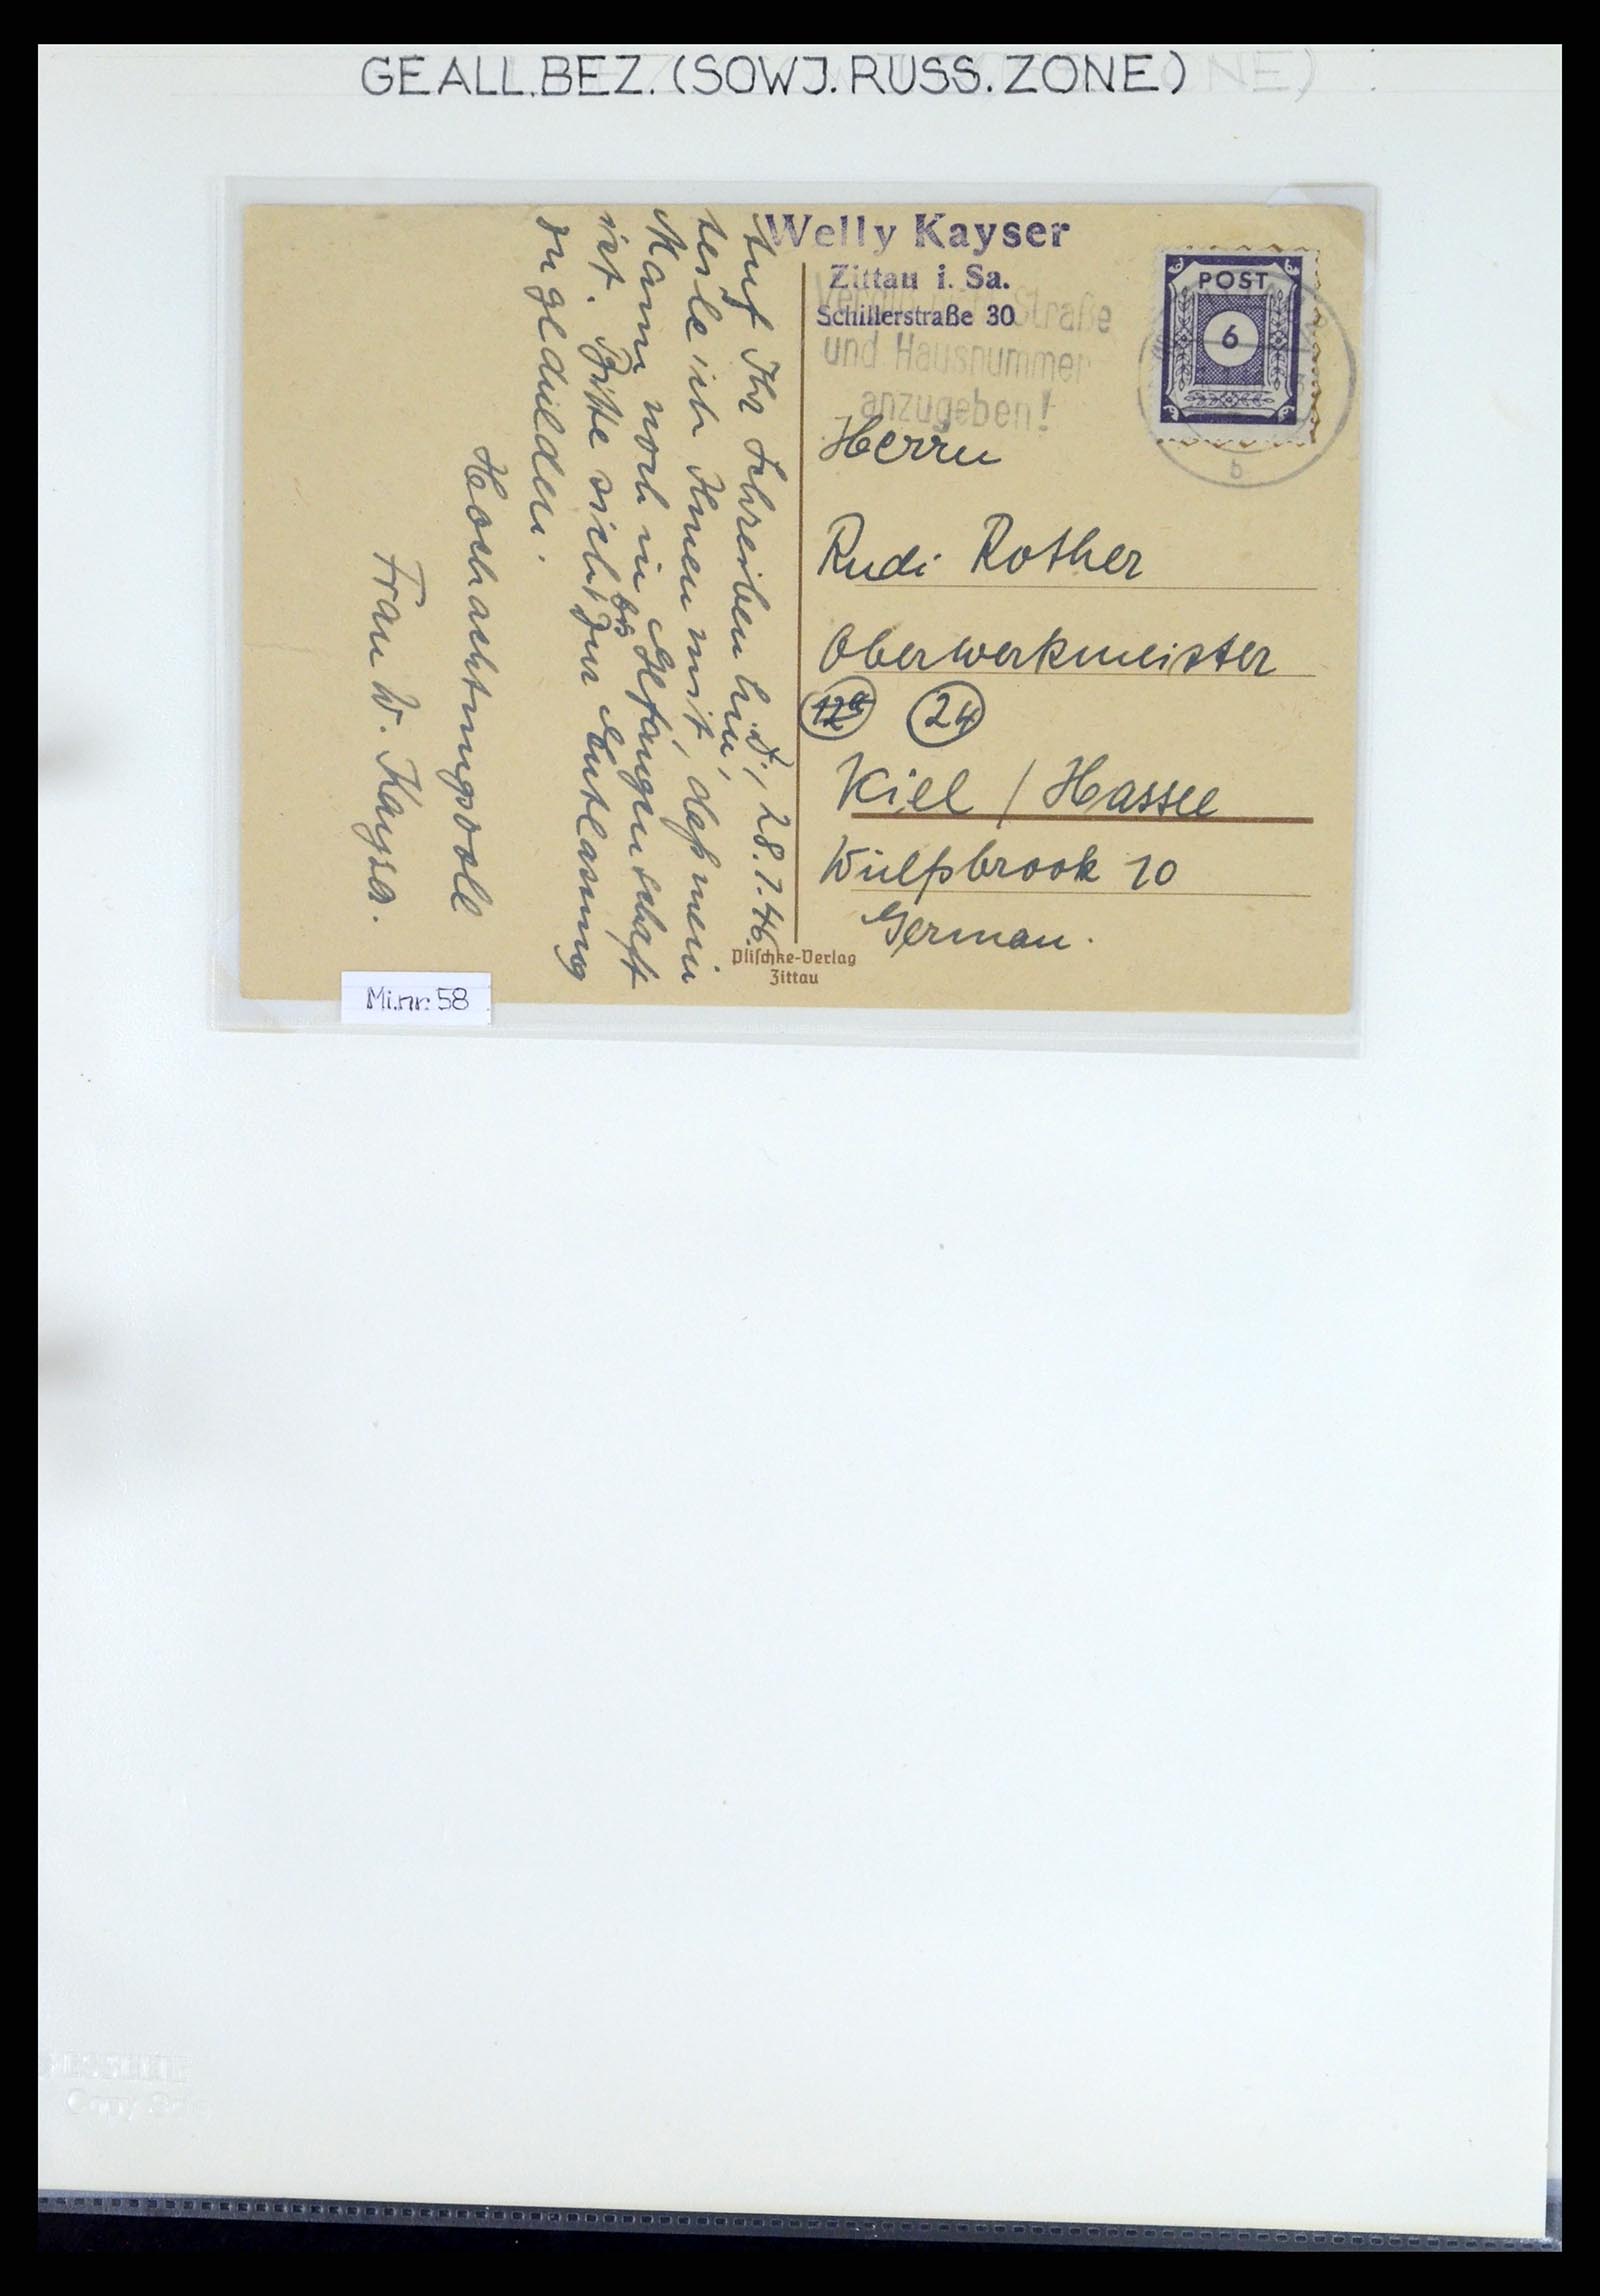 GEALL.BEZ. (SOWJ. RUSS. ZONE)
Welly Kayser
Zittau i. Sa.
Schillerstraße 30
Straße
und Hausnummer
anzugeben!
POST
6
b
Herrn
Rudi Rother
Oberwerkmeister
24
Kiel / Hassee
Wulfsbrook 10
German.
Plischke-Verlag
Zittau
28.1.46.
Auf Ihr Schreiben hin,
teile ich Ihnen mit, daß mein
Mann noch in Gefangenschaft
ist. Bitte sich bis zur Entlassung
zu gedulden.
Hochachtungsvoll
Frau W. Kayser.
Mi.nr: 58